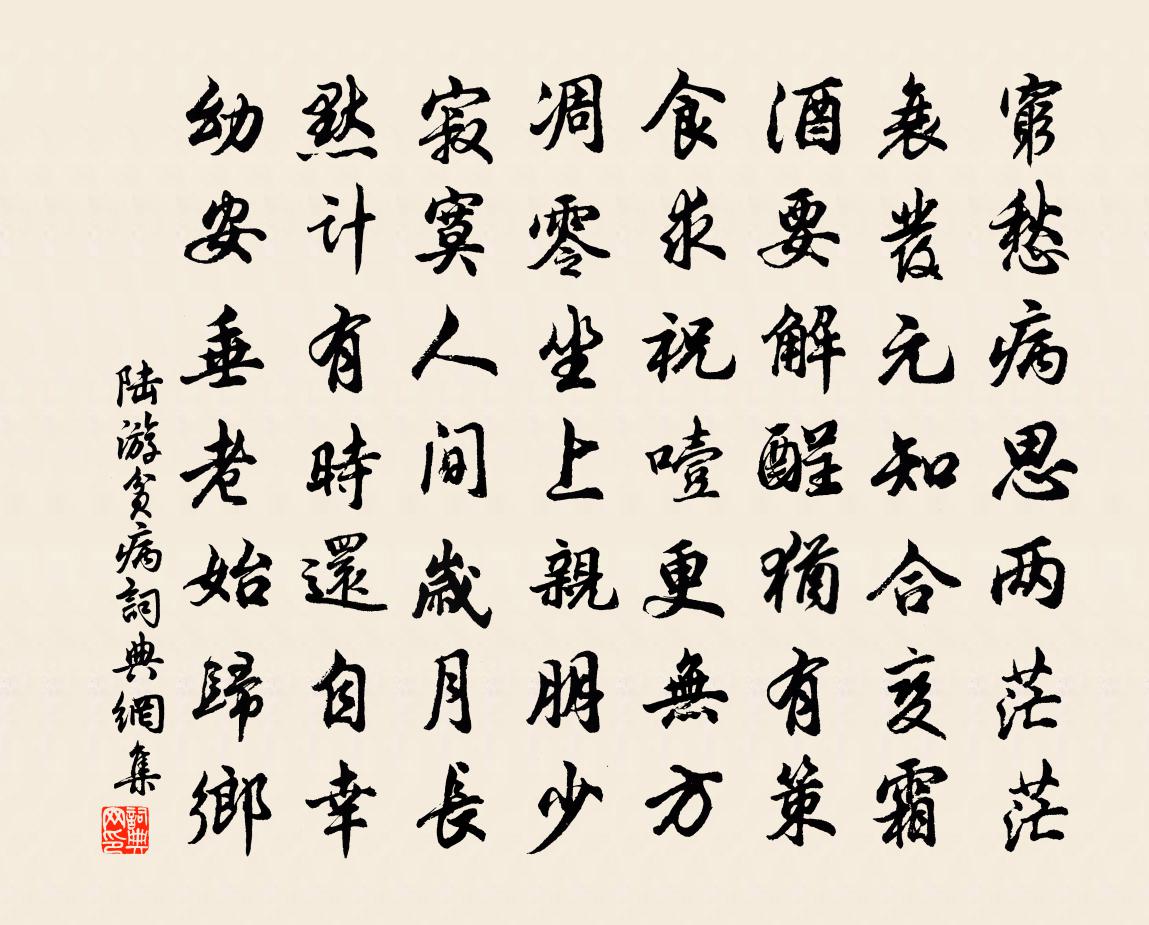 窮愁病思两茫茫
衰髮元知合变霜
酒要解酲猶有策
食求祝噎更無方
凋零坐上親朋少
寂寞人间歲月長
默计有時還自幸
幼安垂老始歸鄉
陆游贫病詞典網集
詞典网印